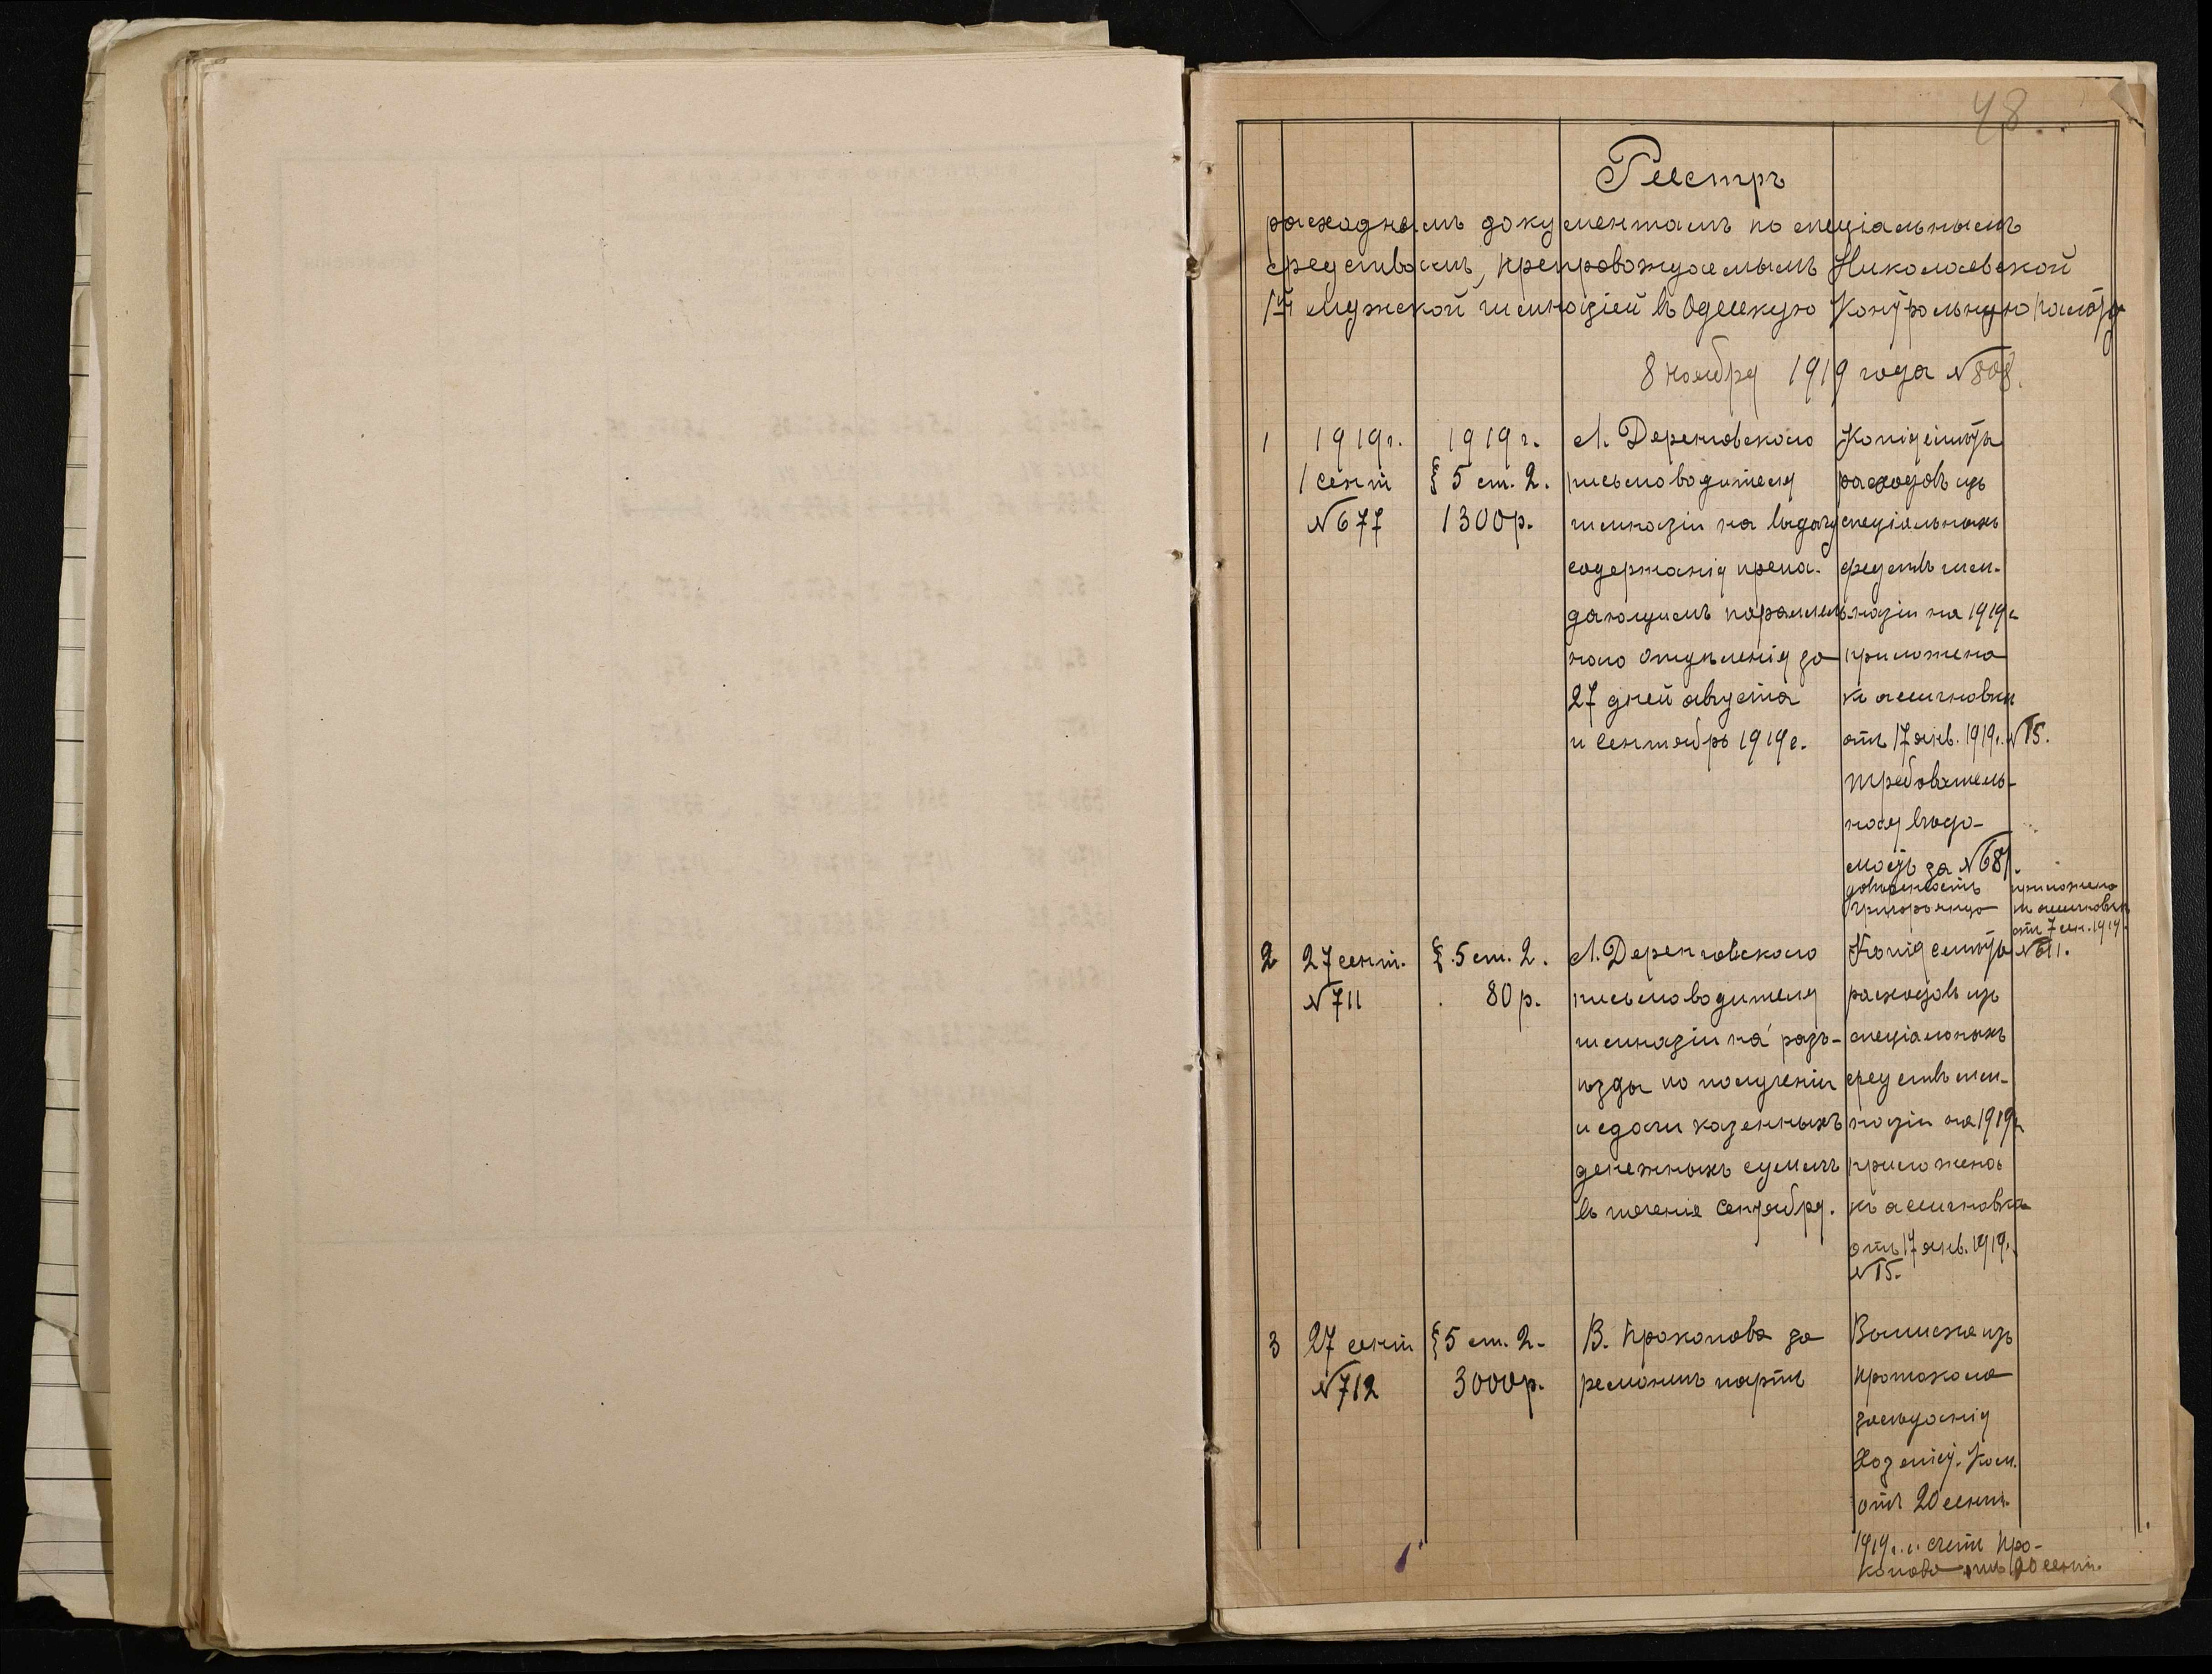 48
Реестръ
расходнымъ документамъ по спеціальнымъ
средствамъ, препровождаемымъ Николаевской
1й мужской гимназіей въ Одесскую Контрольную палату
8 ноября 1919 года №808.
1
1919г.
1 сент
№677
1919г.
§ 5 ст. 2.
1300р.
Л. Деренговского
письмоводителя
гимназіи на выдачу
содержанія препо-
дающимъ параллель-
наго отдѣленія за
27 дней августа
и сентябрь 1919г.
Копія смѣты
расходовъ изъ
спеціальныхъ
средствъ гим-
назіи на 1919г
приложена
къ ассигновкѣ
отъ 17 янв. 1919г. №15.
требователь-
ная вѣдо-
мость за №681.
довѣренность
приложена
къ ассигновкѣ
отъ 7 сен. 1919г.
№611.
2
27 сент.
№711
§ 5 ст. 2.
80р.
Л. Деренговского
письмоводителя
гимназіи на разъ-
ѣзды по полученіи
и сдачи казенныхъ
денежныхъ суммъ
въ теченіе сентября.
Копія смѣты
расходовъ изъ
спеціальныхъ
средствъ гим-
назіи на 1919г
приложена
къ ассигновкѣ
отъ 17 янв. 1919г.
№15.
3
27 сент
№712
§ 5 ст. 2.
3000р.
В. Прокопова за
ремонтъ партъ
Выписка изъ
протокола
засѣданія
Хозяйст. Ком.
отъ 20 сент.
1919г. и счетъ Про-
копова отъ 20 сент.